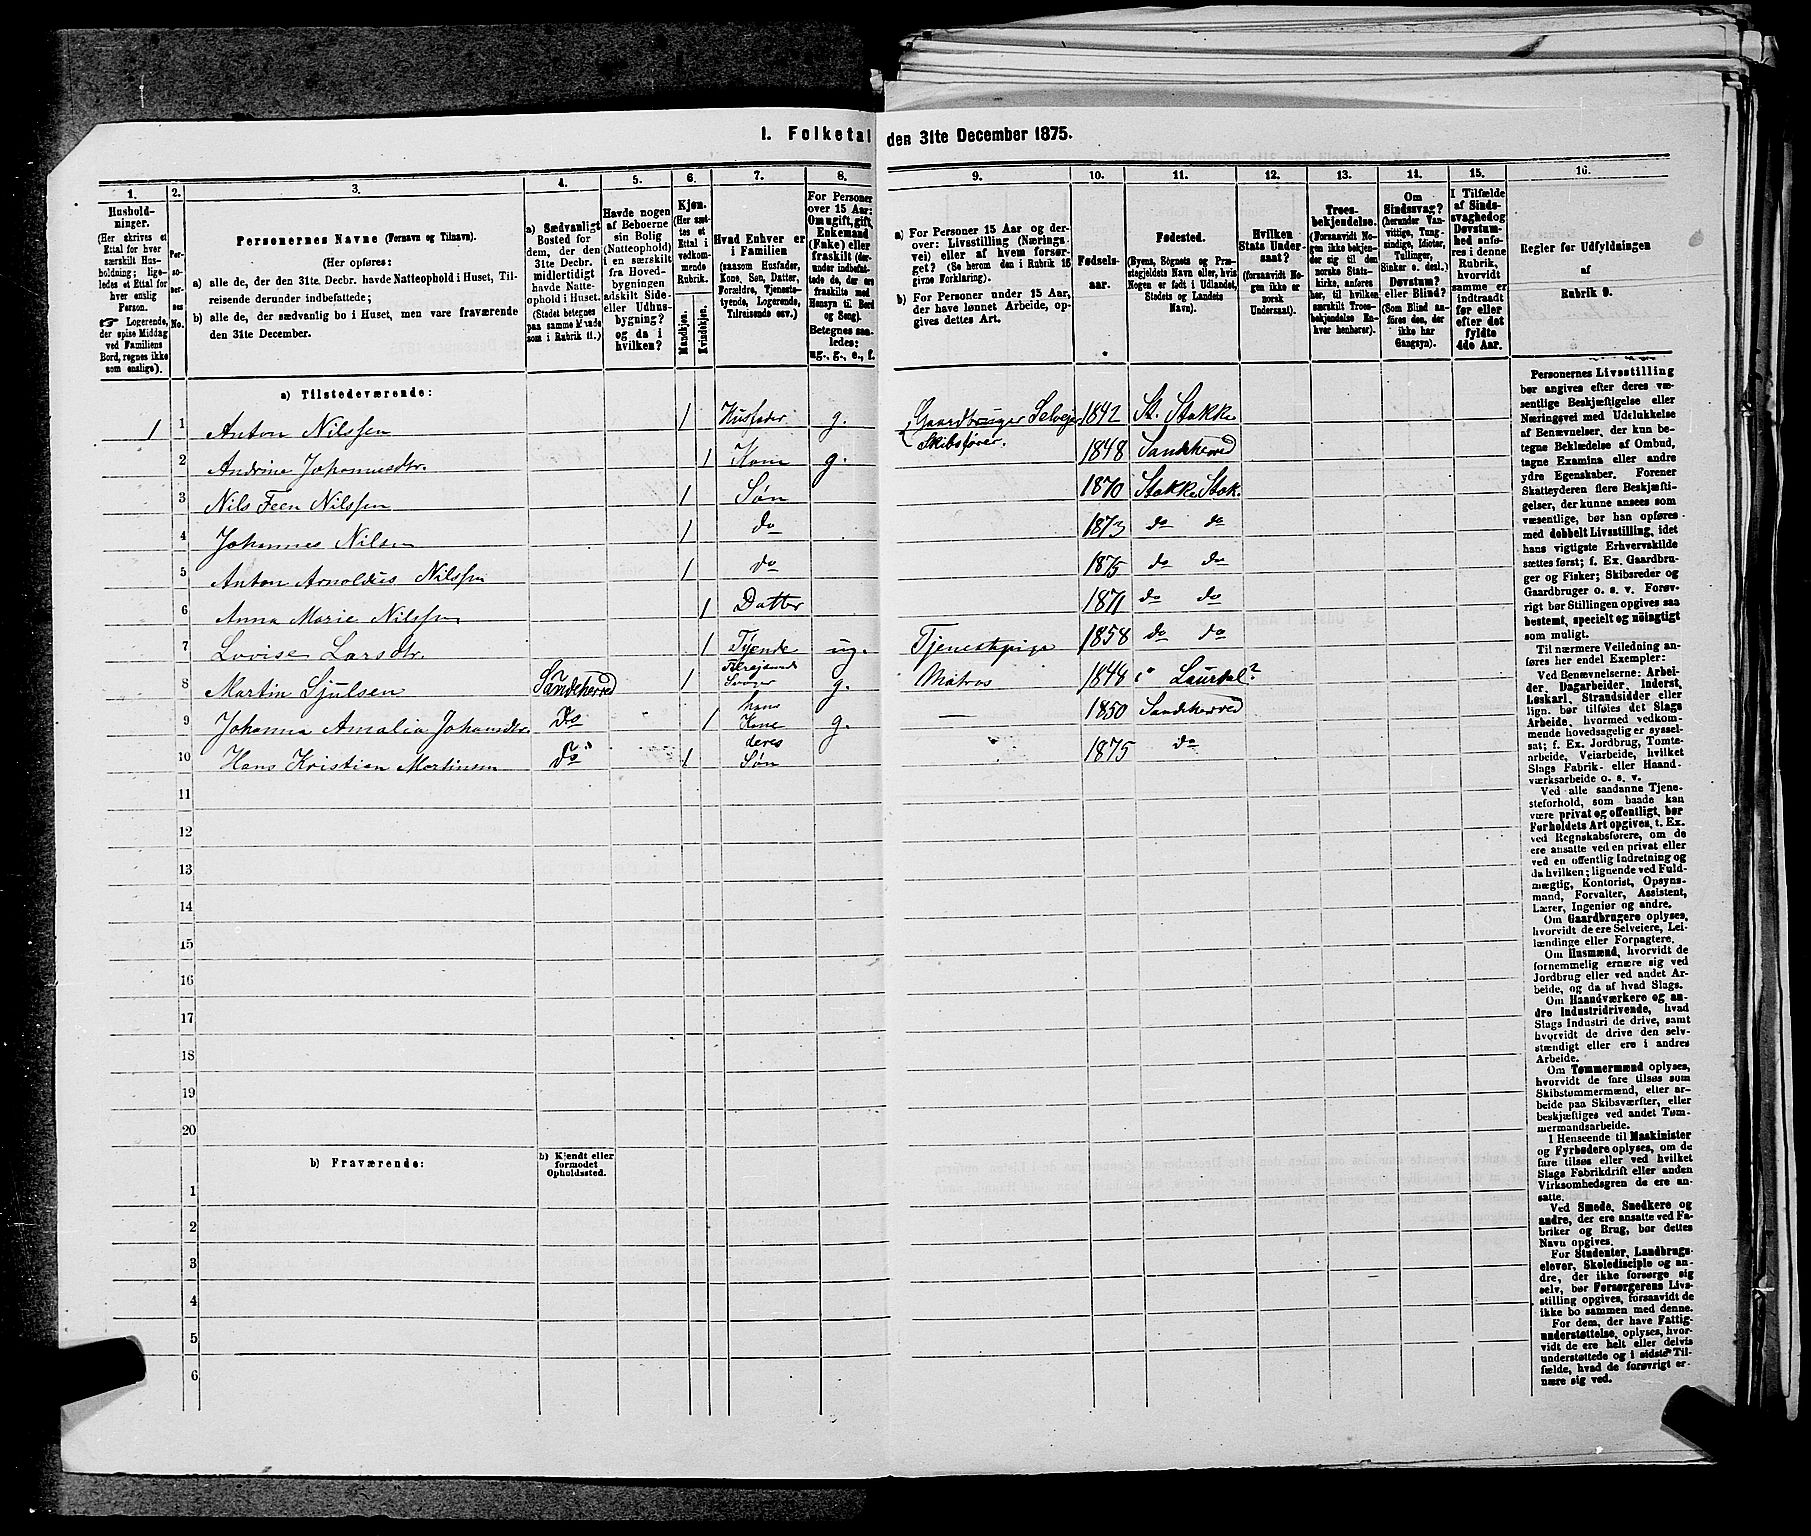 I. Folketal den 31te December 1875.
1. 2. 3. 4. 5. 6. 7. 8. 9. 10. 11. 12. 13. 14. 15. 16.
Husholdninger.
(Her skrives et Ettal for hver særskilt Husholdning; ligeledes et Ettal for hver enslig Person.
☞ Logerende, der spise Middag ved Familiens Bord, regnes ikke som enslige).
Personernes No.
Personernes Navne (Fornavn og Tilnavn).
(Her opføres:
a) alle de, der den 31te. Decbr. havde Natteophold i Huset, Tilreisende derunder indbefattede;
b) alle de, der sædvanlig bo i Huset, men vare fraværende den 31te December.
a) Sædvanligt Bosted for dem, der den 31te Decbr. midlertidigt havde Natteophold i Huset. (Stedet betegnes paa samme Maade som i Rubrik 11.)
Havde nogen af Beboerne sin Bolig (Natteophold) i en særskilt fra Hovedbygningen adskilt Side- eller Udhusbygning? og da i hvilken?
Kjøn. (Her sættes et Ettal i vedkommende Rubrik.
Mandkjøn. Kvindekjøn.
Hvad Enhver er i Familien
(saasom Husfader, Kone, Søn, Datter, Forældre, Tjenestetyende, Logerende, Tilreisende osv.)
For Personer over 15 Aar: Om ugift, gift, Enkemand (Enke) eller fraskilt (derunder indbefattede de, der ere fraskilte med Hensyn til Bord og Seng).
Betegnes saaledes: ug., g., e., f.
a) For Personer 15 Aar og derover: Livsstilling (Næringsvei) eller af hvem forsørget? (Se herom den i Rubrik 16 givne Forklaring).
b) For Personer under 15 Aar, der have lønnet Arbeide, opgives dettes Art.
Fødselsaar.
Fødested.
(Byens, Sognets og Præstegjeldets Navn eller, hvis Nogen er født i Udlandet, Stedets og Landets Navn).
Hvilken Stats Undersaat?
(forsaavidt Nogen ikke er norsk Undersaat).
Troesbekjendelse.
(Forsaavidt Nogen ikke bekjender sig til den norske Statskirke, anføres her, til hvilken særskilt Troesbekjendelse Enhver henhører).
Om Sindssvag? (herunder Vanvittige, Tungsindige, Idioter, Tullinger, Sinker o. desl.) Døvstum? eller Blind? (Som Blind anføres den, der ikke har Gangsyn).
I Tilfælde af Sindssvaghed og Døvstumhed anføres i denne Rubrik, hvorvidt samme er indtraadt før eller efter det fyldte 4de Aar.
Regler for Udfyldningen af Rubrik 9.
a) Tilstedeværende:
1 1 Anton Nilssen 1 Husfader g. Gaardbruger Selveier Skibsfører. 1842 St. Stokke
2 Andrine Johannesdtr. 1 Kone g. 1848 Sandeherred
3 Nils Feen Nilssen 1 Søn 1870 Stokke Stok.
4 Johannes Nilsen 1 do 1873 do do
5 Anton Arnoldus Nilssen 1 do 1875 do do
6 Anna Marie Nilssen 1 Datter 1871 do do
7 Lovise Larsdtr. 1 Tjende ug. Tjenestepige 1858 do do
8 Martin Sjulsen Sandeherred 1 Tilrejsende Svoger g. Matros 1848 Laurdal?
9 Johanna Amalia Johansdtr. do 1 hans Kone g. — 1850 Sandeherred
10 Hans Kristian Martinsen do 1 deres Søn 1875 do
11
12
13
14
15
16
17
18
19
20
b) Fraværende: b) Kjendt eller formodet Opholdssted.
1
2
3
4
5
6
Personernes Livsstilling
bør angives efter deres væ-
sentlige Beskjæftigelse eller
Næringsvei med Udelukkelse
af Benævnelser, der kun be-
tegne Beklædelse af Ombud,
tagne Examina eller andre
ydre Egenskaber. Forener
Skatteyderen flere Beskjæfti-
gelser, der kunne ansees som
væsentlige, bør han opføres
med dobbelt Livsstilling, idet
hans vigtigste Erhvervskilde
sættes først; f. Ex. Gaardbru-
ger og Fisker; Skibsreder og
Gaardbruger o. s. v. Forøv-
rigt bør Stillingen opgives saa
bestemt, specielt og nøiagtigt
som muligt.
Til nærmere Veiledning an-
føres her endel Exempler:
Ved Benævnelserne: Arbei-
der, Dagarbeider, Inderst,
Løskarl, Strandsidder eller
lign. bør tilføies det Slags
Arbeide, hvormed vedkom-
mende hovedsagelig er syssel-
sat; f. Ex. Jordbrug, Tomte-
arbeide, Veiarbeide, hvilket
Slags Fabrik- eller Haand-
værksarbeide o. s. v.
Ved alle saadanne Tjene-
steforhold, som baade kan
være privat og offentligt, bør
Forholdets Art opgives, t. Ex.
ved Regnskabsførere, om de
ere ansatte ved en privat eller
ved en offentlig Indretning og
da hvilken; lignende ved Fuld-
mægtig, Kontorist, Opsyns-
mand, Forvalter, Assistent,
Lærer, Ingeniør og andre.
Om Gaardbrugere oplyses,
hvorvidt de ere Selveiere, Lei-
lændinge eller Forpagtere.
Om Husmænd, hvorvidt de
fornemmelig ernære sig ved
Jordbrug eller ved andet Ar-
beide, og da af hvad Slags.
Om Haandværkere og an-
dre Industridrivende, hvad
Slags Industri de drive, samt
hvorvidt de drive den selv-
stændigt eller ere i andres
Arbeide.
Om Tømmermænd oplyses,
hvorvidt de fare tilsøs som
Skibstømmermænd, eller ar-
beide paa Skibsværfter, eller
beskjæftiges ved andet Tøm-
mermandsarbeide.
I Henseende til Maskinister
og Fyrbødere oplyses, om de
fare tilsøs eller ved hvilket
Slags Fabrikdrift eller anden
Virksomhedsgren de ere an-
satte.
Ved Smede, Snedkere og
andre, der ere ansatte ved Fa-
briker og Brug, bør dettes
Navn opgives.
For Studenter, Landbrugs-
elever, Skoledisciple og an-
dre, der ikke forsørge sig
selv, bør Forsørgerens Livs-
stilling opgives, forsaavidt de
ikke bo sammen med denne.
For dem, der have Fattig-
understøttelse, oplyses, hvor-
vidt de ere helt eller delvis
understøttede og i sidste Til-
fælde, hvad de forøvrigt er-
nære sig ved.